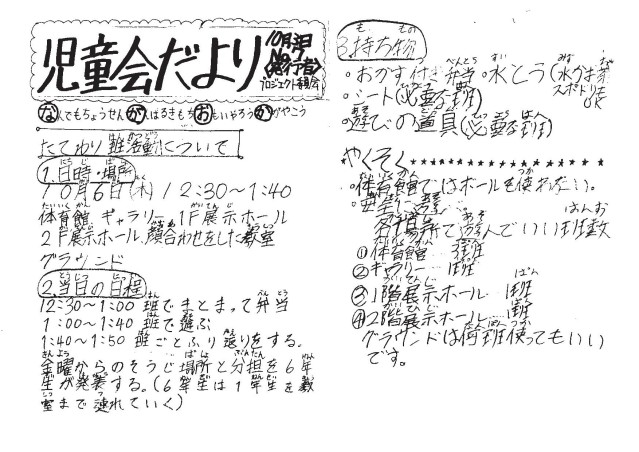 児童会だより
10月3日
<発行者>
プロジェクト委員会
なんでもちょうせん がんばるきもち おもいやろう かがやこう
たてわり班活動について
1.日時・場所
10月6日(木) 12:30〜1:40
体育館、ギャラリー、1F展示ホール
2F展示ホール、顔合わせをした教室
グラウンド
2.当日の日程
12:30〜1:00 班でまとまって弁当
1:00〜1:40 班で遊ぶ
1:40〜1:50 班ごとふり返りをする。
金曜からのそうじ場所と分担を6年
生が発表する。(6年生は1年生を教
室まで連れていく)
3.持ち物
・おかず付き弁当・水とう(水かお茶
スポドリもOK
・シート(必要な班)
・遊びの道具(必要な班)
やくそく
・体育館ではボールを使わない。
各場所で遊んでいい班数
①体育館 3班
②ギャラリー 1班
③1階展示ホール 1班
④2階展示ホール 1班
グラウンドは何班使ってもいい
です。